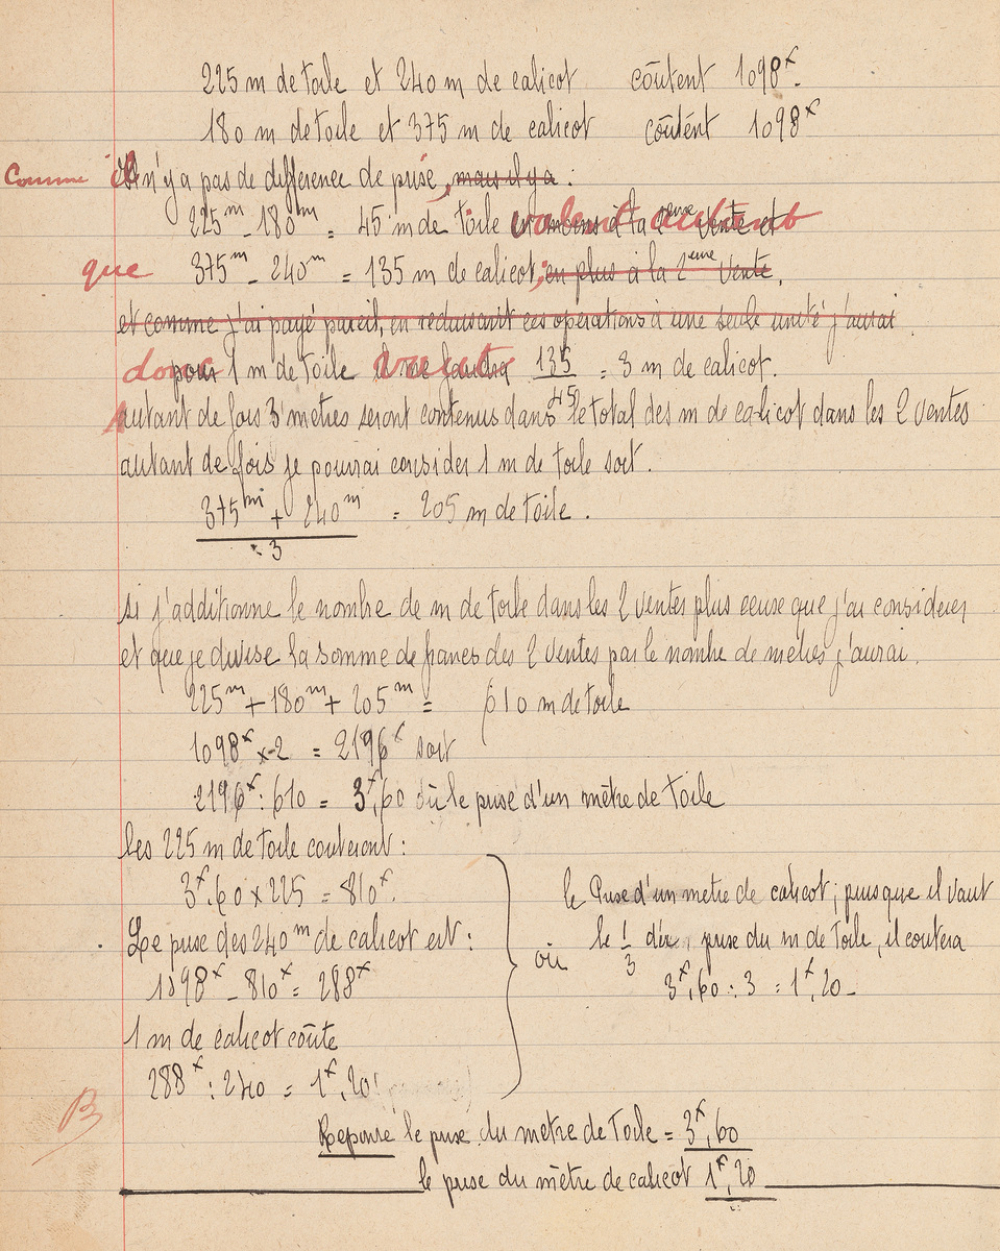 225 m de toile et 240 m de calicot coûtent 1098f.
180 m de toile et 375 m de calicot coûtént 1098f
Comme il n'y a pas de difference de prise, mais il y a :
225m - 180m = 45 m de toile valent autant en moins à la 2eme vente et
que 375m - 240m = 135 m de calicot; en plus à la 2eme vente.
et comme j'ai payé pareil, en reduisant ces operations à une seule unité j'aurai
donc pour 1 m de toile vaut il me faudra 135/45 = 3 m de calicot.
Autant de fois 3 metres seront contenus dans le total des m de calicot dans les 2 ventes
autant de fois je pourrai considerer 1 m de toile soit.
375m + 240m = 205 m de toile.
: 3
si j'additionne le nombre de m de toile dans les 2 ventes plus ceuse que j'ai considerer
et que je divise la somme de francs des 2 ventes par le nombre de metres j'aurai.
225m + 180m + 205m = 610 m de toile
1098f x 2 = 2196f soit
2196f : 610 = 3f,60 où le prise d'un mètre de Toile
les 225 m de toile couteront :
3f.60 x 225 = 810f.
Le prise des 240m de calicot est :
1098f - 810f = 288f
1 m de calicot coûte
288f : 240 = 1f,20
ou
le Prise d'un metre de calicot; puisque il vaut
le 1/3 du prise du m de toile, il coutera
3f,60 : 3 = 1f,20 -
B
Reponse le prise du metre de Toile = 3f,60
le prise du mètre de calicot 1f,20